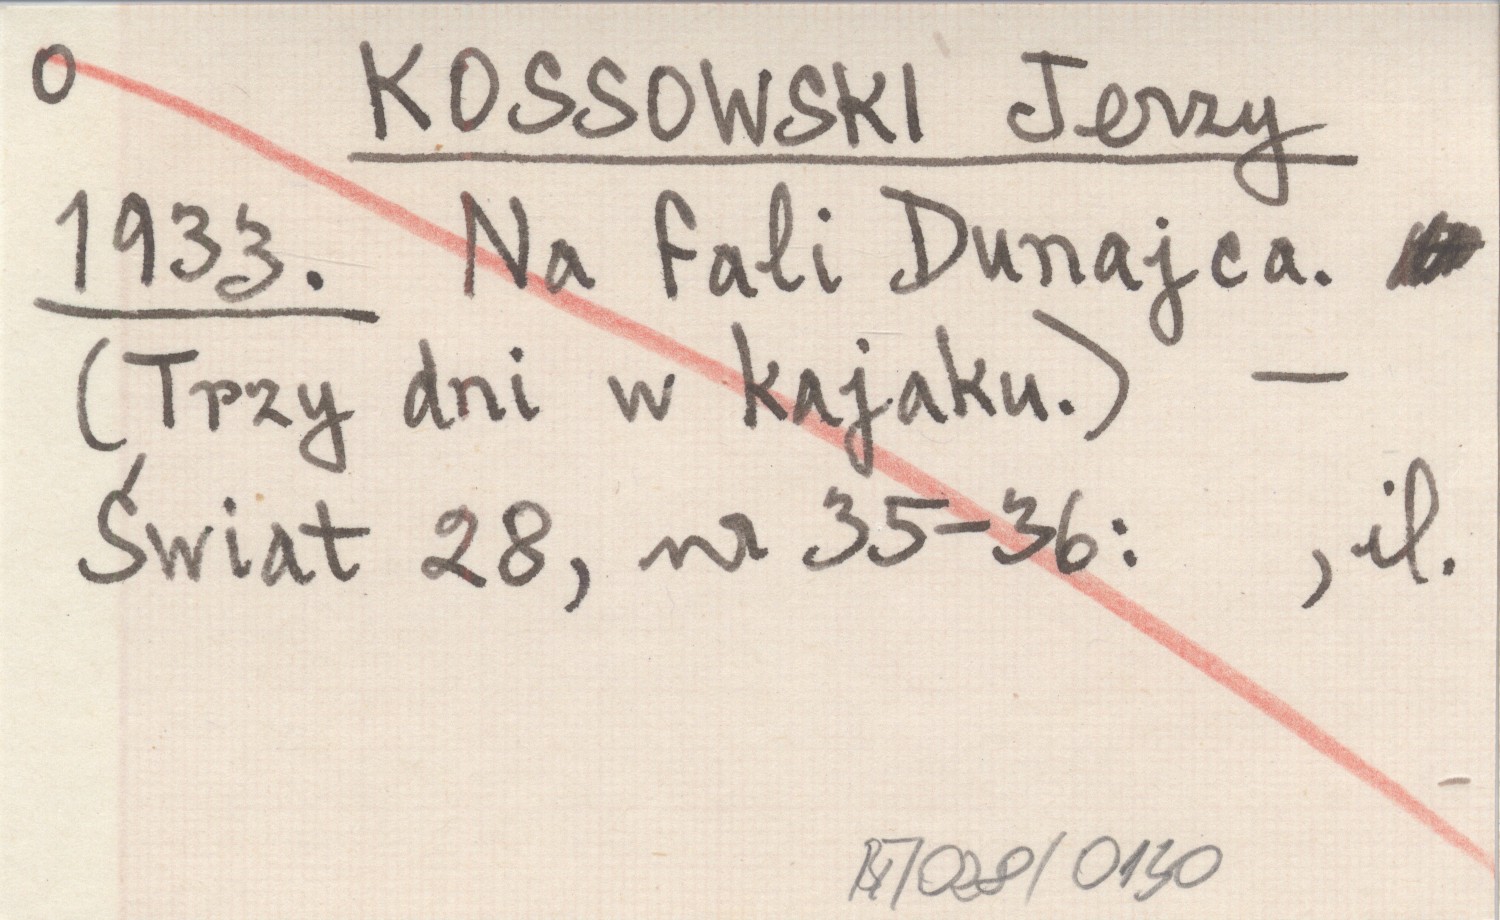 O KOSSOWSKI Jerzy
1933. Na fali Dunajca.
(Trzy dni w kajaku.) —
Świat 28, nr 35-36: , il.
/028/0130